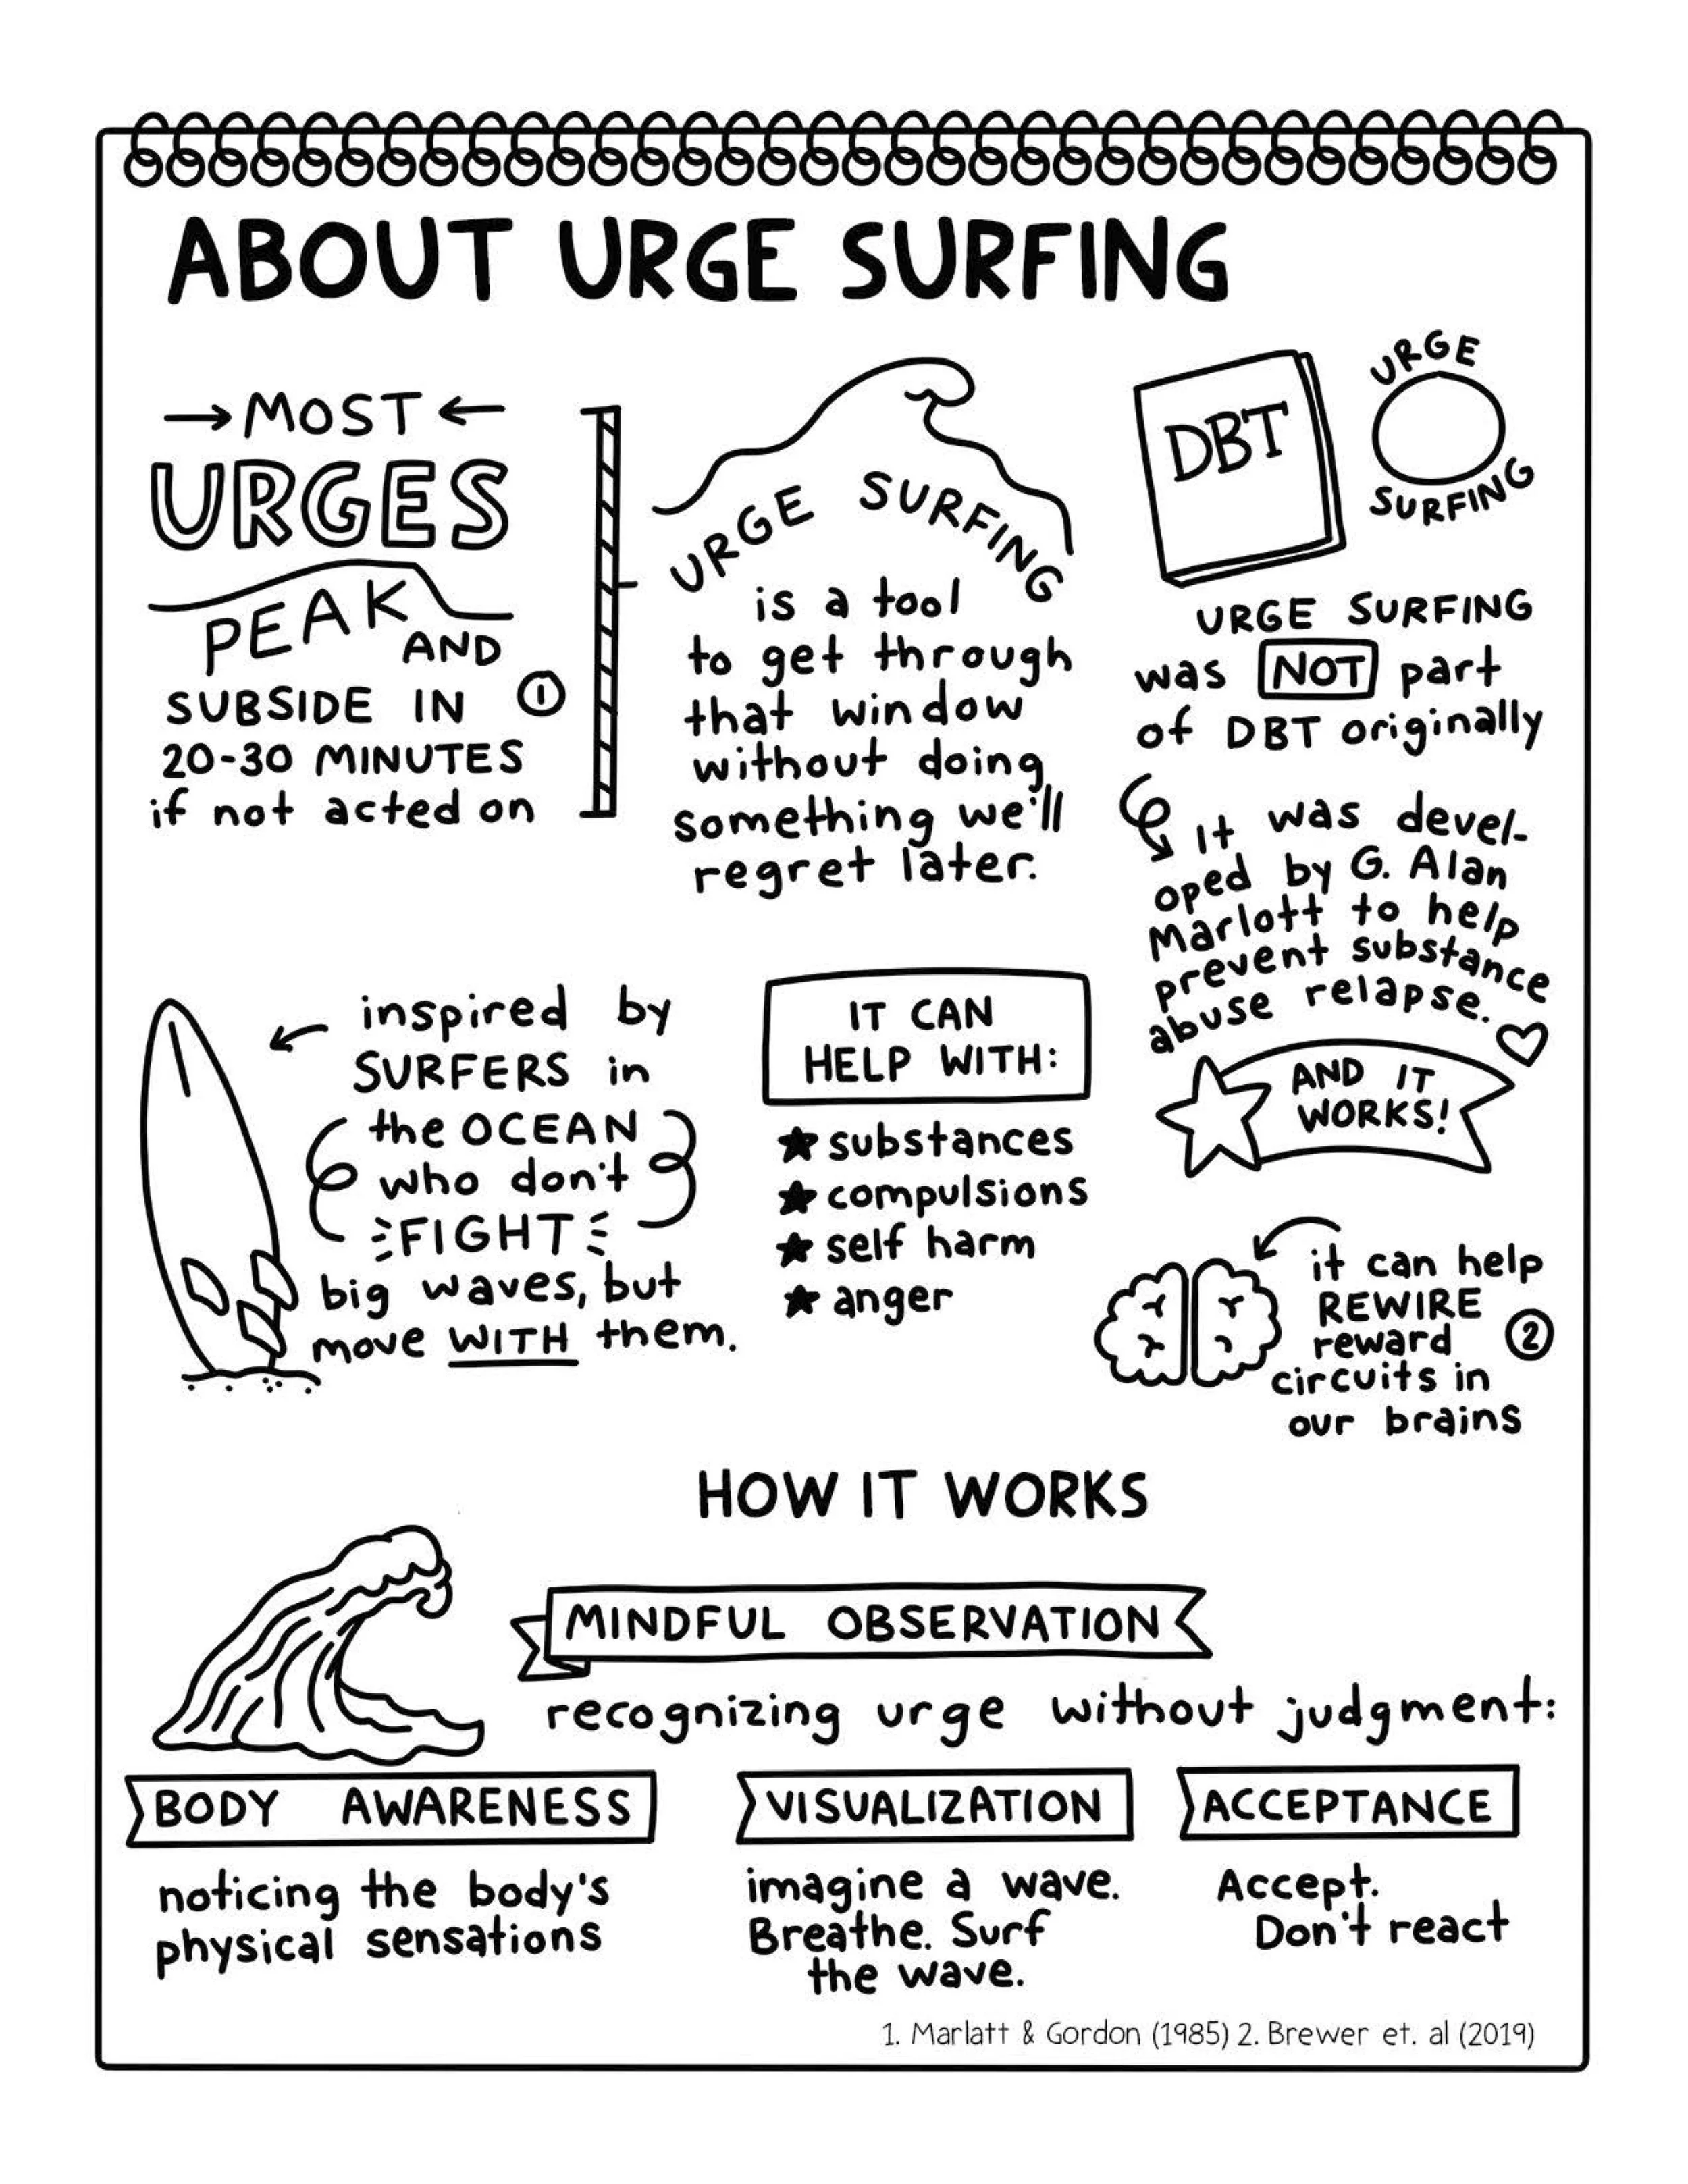 ABOUT URGE SURFING
MOST
URGES
PEAK
AND
SUBSIDE IN ①
20-30 MINUTES
if not acted on
URGE SURFING
is a tool
to get through
that window
without doing
something we'll
regret later.
DBT
URGE
SURFING
URGE SURFING
was NOT part
of DBT originally
It was devel-
oped by G. Alan
Marlott to help
prevent substance
abuse relapse.
AND IT
WORKS!
inspired by
SURFERS in
the OCEAN
who don't
FIGHT
big waves, but
move WITH them.
IT CAN
HELP WITH:
substances
compulsions
self harm
anger
it can help
REWIRE
reward ②
circuits in
our brains
HOW IT WORKS
MINDFUL OBSERVATION
recognizing urge without judgment:
BODY AWARENESS
noticing the body's
physical sensations
VISUALIZATION
imagine a wave.
Breathe. Surf
the wave.
ACCEPTANCE
Accept.
Don't react
1. Marlatt & Gordon (1985) 2. Brewer et. al (2019)